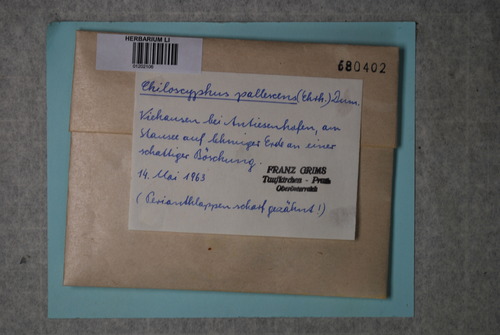 HERBARIUM LI
680402
Chiloscyphus pallescens (Ehrh.) Dum.
Viehausen bei Antiesenhofen, am
Stausee auf lehmiger Erde an einer
schattiger Böschung.
14. Mai 1963
FRANZ GRIMS
Taufkirchen - Pram
Oberösterreich
(Perianthlappen scharf gezähnt!)